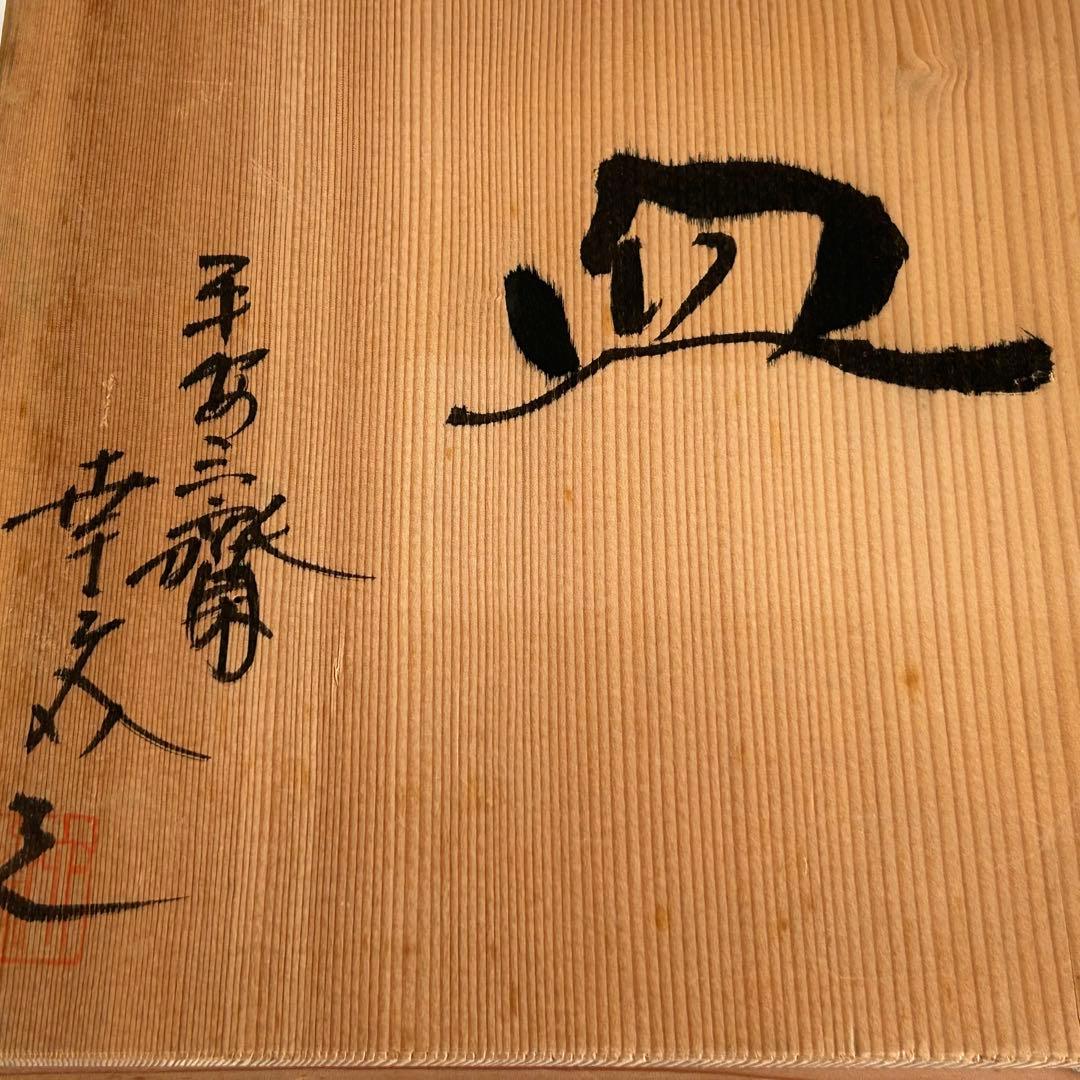 皿
平安三齋
幸文
造